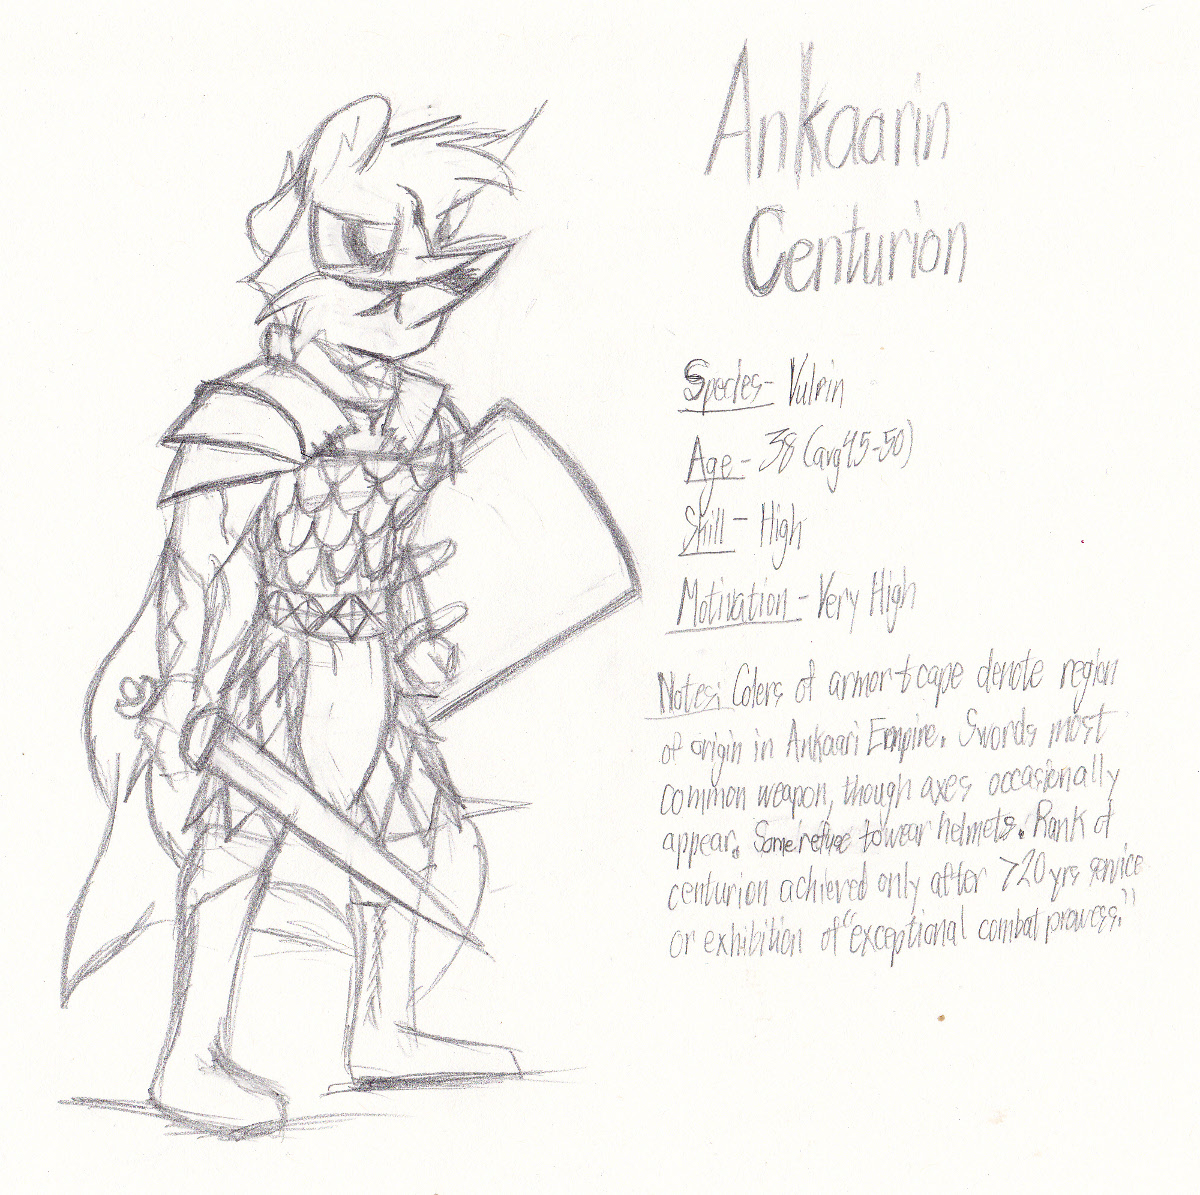 Ankaarin
Centurion
Species- Vulpin
Age- 38 (avg 45-50)
Skill - High
Motivation - Very High
Notes: Colors of armor + cape denote region
of origin in Ankaari Empire. Swords most
common weapon, though axes occasionally
appear. Some refuse to wear helmets. Rank of
centurion achieved only after >20 yrs service
or exhibition of "exceptional combat prowess."